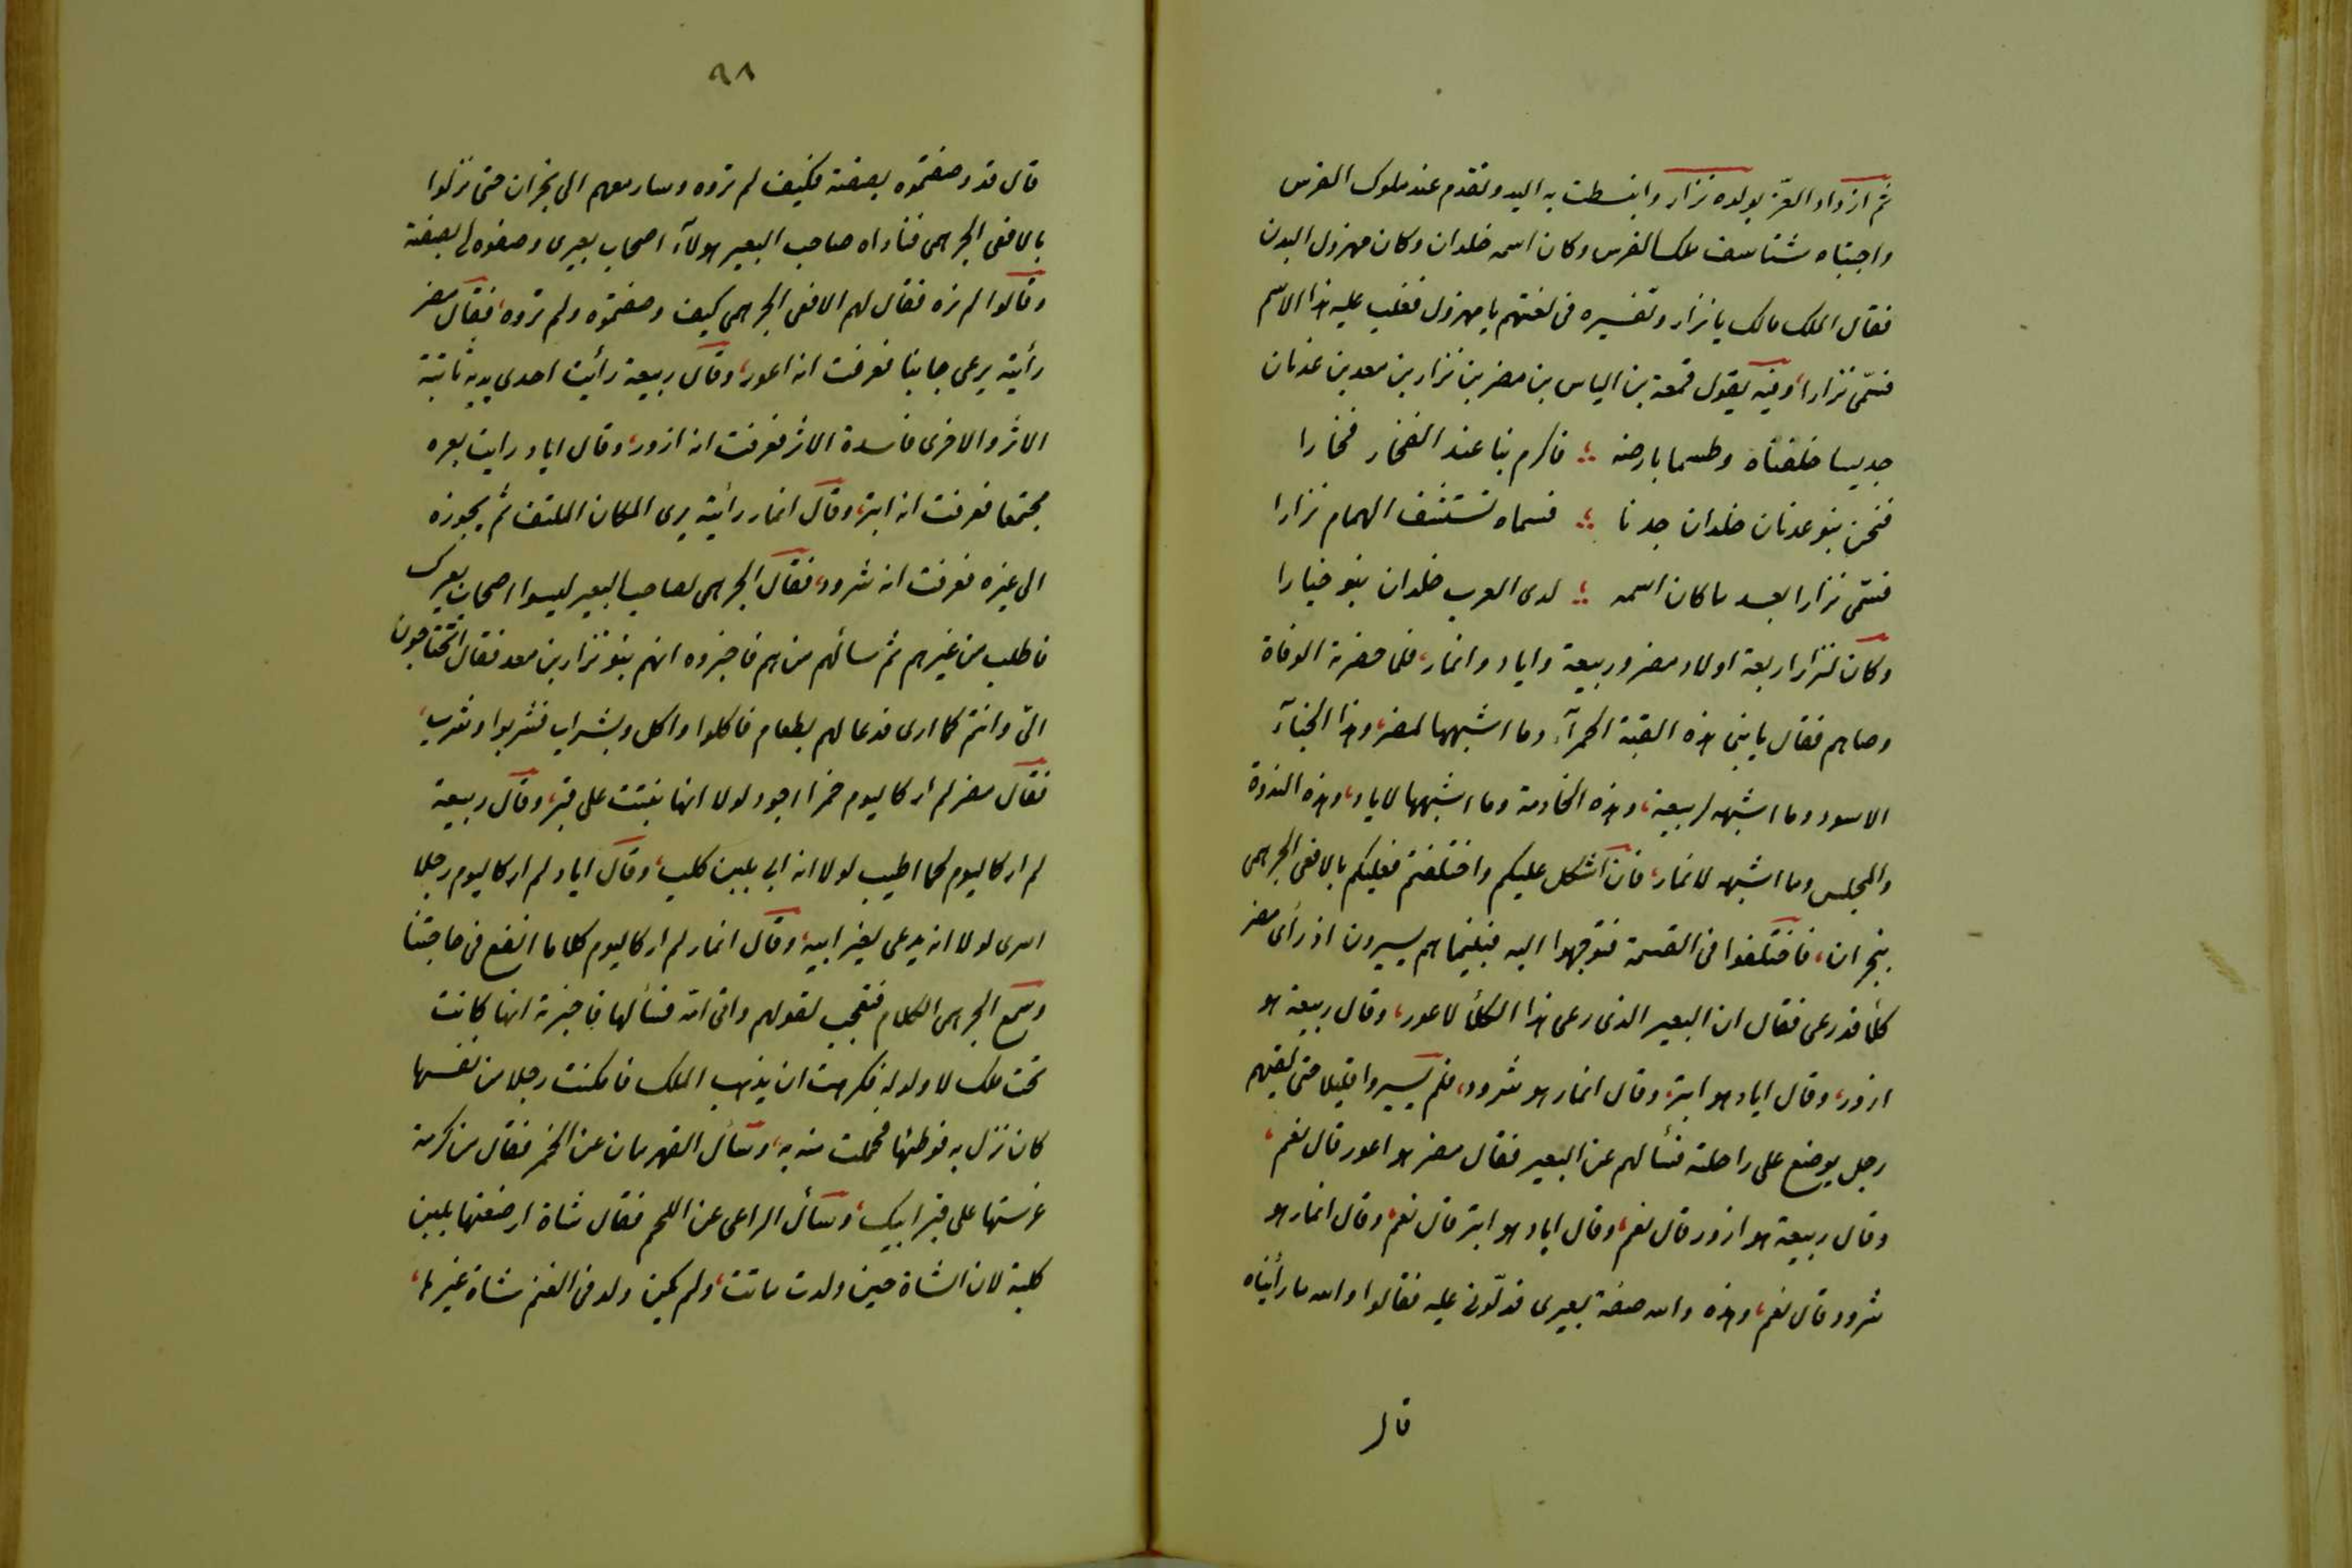 ثم ازداد العزّ بولده نزار وانبسطت به اليد وتقدم عند ملوك الفرس
واجتباه شتاسف ملك الفرس وكان اسمه خلدان وكان مهزول البدن
فقال الملك مالك يا نزار وتفسيره فى لغتهم يا مهزول فغلب عليه هذا الاسم
فسمّى نزارا، وفيه يقول قمعة بن الياس بن مضر بن نزار بن معد بن عدنان
جديسا خلفناه وطسما بارضه ؛ فاكرم بنا عند الفخار فخارا
فنحن بنو عدنان خلدان جدنا ؛ فسماه تستشف الهمام نزارا
فسمّى نزارا بعد ما كان اسمه ؛ لدى العرب خلدان بنو خيارا
وكان لنزار اربعة اولاد مضر وربيعة واياد وانمار، فلما حضرته الوفاة
وصاهم فقال يا بنى هذه القبة الحمرآء وما اشبهها لمضر، وهذا الخبآء
الاسود وما اشبهه لربيعة، وهذه الخادمة وما اشبهها لاياد، وهذه الندوة
والمجلس وما اشبهه لانمار، فان اشكل عليكم واختلفتم فعليكم بالافعى الجرهمى
بنجران، فاختلفوا فى القسمة فتوجهوا اليه فبينما هم يسيرون اذ رأى مضر
كلأ قد رعى فقال ان البعير الذى رعى هذا الكلأ لاعور، وقال ربيعة هو
ازور، وقال اياد هو ابتر، وقال انمار هو شرود، فلم يسيروا قليلا حتى لقيهم
رجل يوضع على راحلته فسألهم عن البعير فقال مضر هو اعور قال نعم،
وقال ربيعة هو ازور قال نعم، وقال اياد هو ابتر قال نعم، وقال انمار هو
شرود قال نعم، وهذه والله صفة بعيرى فدلّونى عليه فقالوا والله ما رأيناه
قال
٩٨
قال قد وصفتموه بصفته فكيف لم تروه وسار معهم الى نجران حتى نزلوا
بالافعى الجرهمى فناداه صاحب البعير هولآء اصحاب بعيرى وصفوه لى بصفته
وقالوا لم نره فقال لهم الافعى الجرهمى كيف وصفتموه ولم تروه، فقال مضر
رأيته يرعى جانبا فعرفت انه اعور، وقال ربيعة رأيت احدى يديه ثابتة
الاثر والاخرى فاسدة الاثر فعرفت انه ازور، وقال اياد رايت بعره
مجتمعا فعرفت انه ابتر، وقال انمار رأيته يرى المكان الملتف ثم يجوزه
الى غيره فعرفت انه شرود، فقال الجرهمى لصاحب البعير ليسوا اصحاب بعيرك
فاطلب من غيرهم ثم سائلهم من هم فاخبروه انهم بنو نزار بن معد فقال اتحتاجون
الىّ وانتم كما ارى فدعا لهم بطعام فاكلوا واكل وبشراب فشربوا وشرب،
فقال مضر لم ار كاليوم خمرا اجود لولا انها نبتت على قبر، وقال ربيعة
لم ار كاليوم لحما اطيب لولا انه ربى بلبن كلب، وقال اياد لم ار كاليوم رجلا
اسرى لولا انه يدعى لغير ابيه، وقال انمار لم ار كاليوم كلاما انفع فى حاجتنا
وسمع الجرهمى الكلام فتعجب لقولهم واتى امه فسألها فاخبرته انها كانت
تحت ملك لا ولد له فكرهت ان يذهب الملك فامكنت رجلا من نفسها
كان نزل به فوطئها فحملت منه به، وسأل القهرمان عن الخمر فقال من كرمة
غرستها على قبر ابيك، وسأل الراعى عن اللحم فقال شاة ارضعتها بلبن
كلبة لان الشاة حين ولدت ماتت، ولم يكن ولد فى الغنم شاة غيرها،